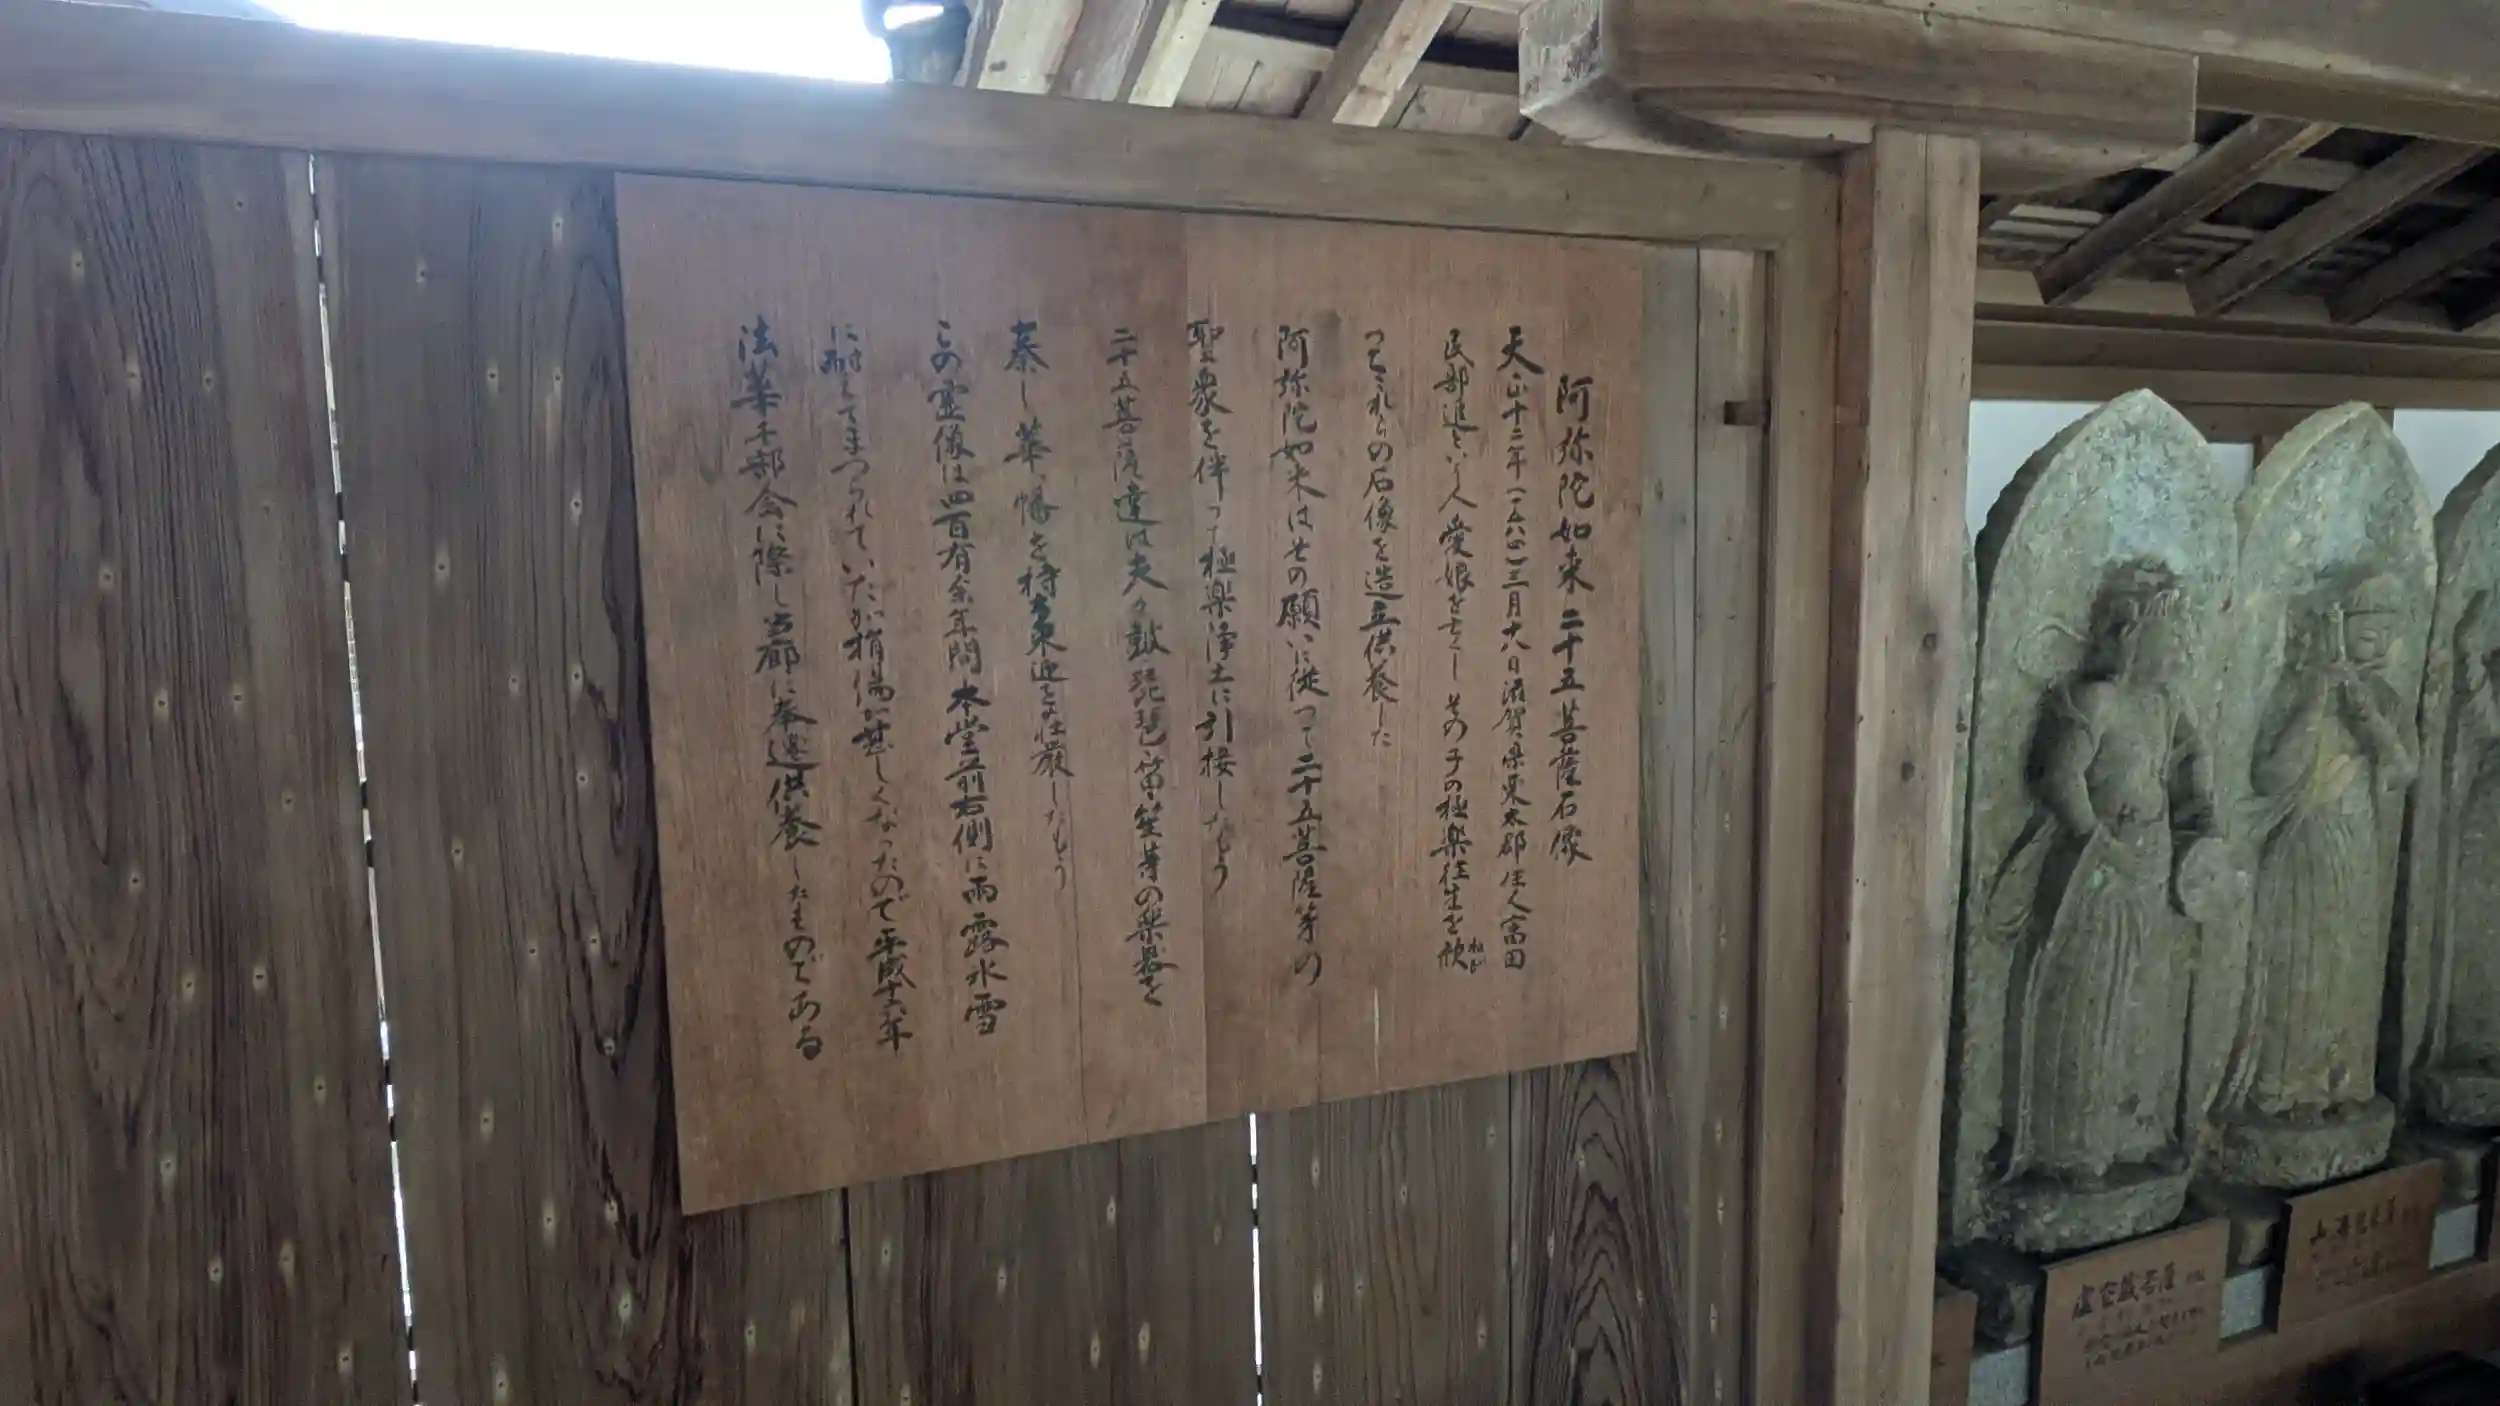 阿弥陀如来二十五菩薩石像
天正十二年(一五八四)三月十八日滋賀県栗太郡住人富田
民部進という人愛娘を亡くしその子の極楽往生を欣
ねが
ってこれらの石像を造立供養した
阿弥陀如来はその願いに従って二十五菩薩等の
聖衆を伴って極楽浄土に引接したもう
二十五菩薩達は夫々鼓琵琶笛笙等の楽器を
奏し華幡を持ち来迎を荘厳したもう
この霊像は四百有余年間本堂前右側に雨露氷雪
に耐えてまつられていたが損傷が甚しくなったので平成十六年
法華千部会に際し当廊に奉遷供養したものである
虚空蔵菩薩